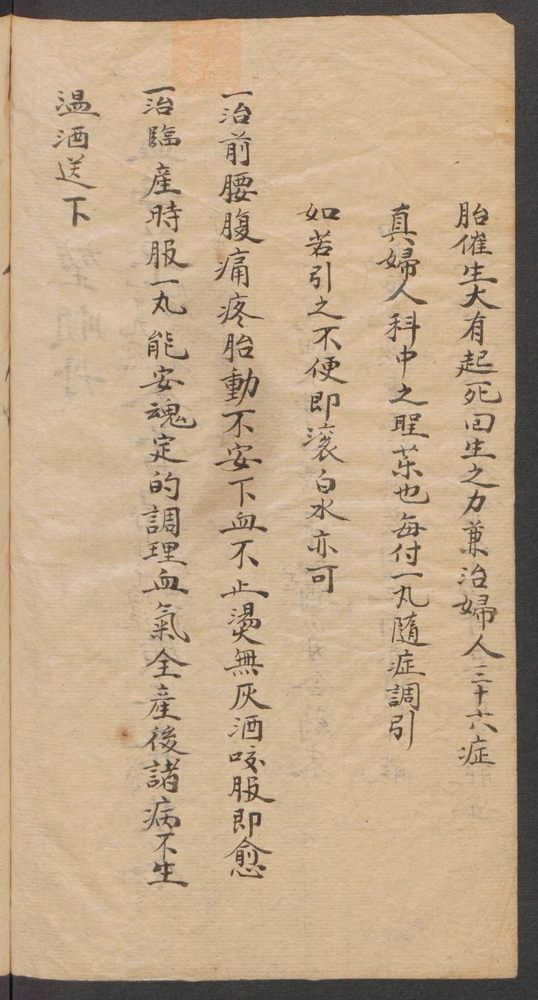 胎催生大有起死回生之力兼治婦人三十六症
真婦人科中之聖葯也每付一丸隨症調引
如若引之不便即滚白水亦可
一治前腰腹痛疼胎動不安下血不止燙無灰酒咬服即愈
一治臨產時服一丸能安魂定的調理血氣全產後諸病不生
温酒送下